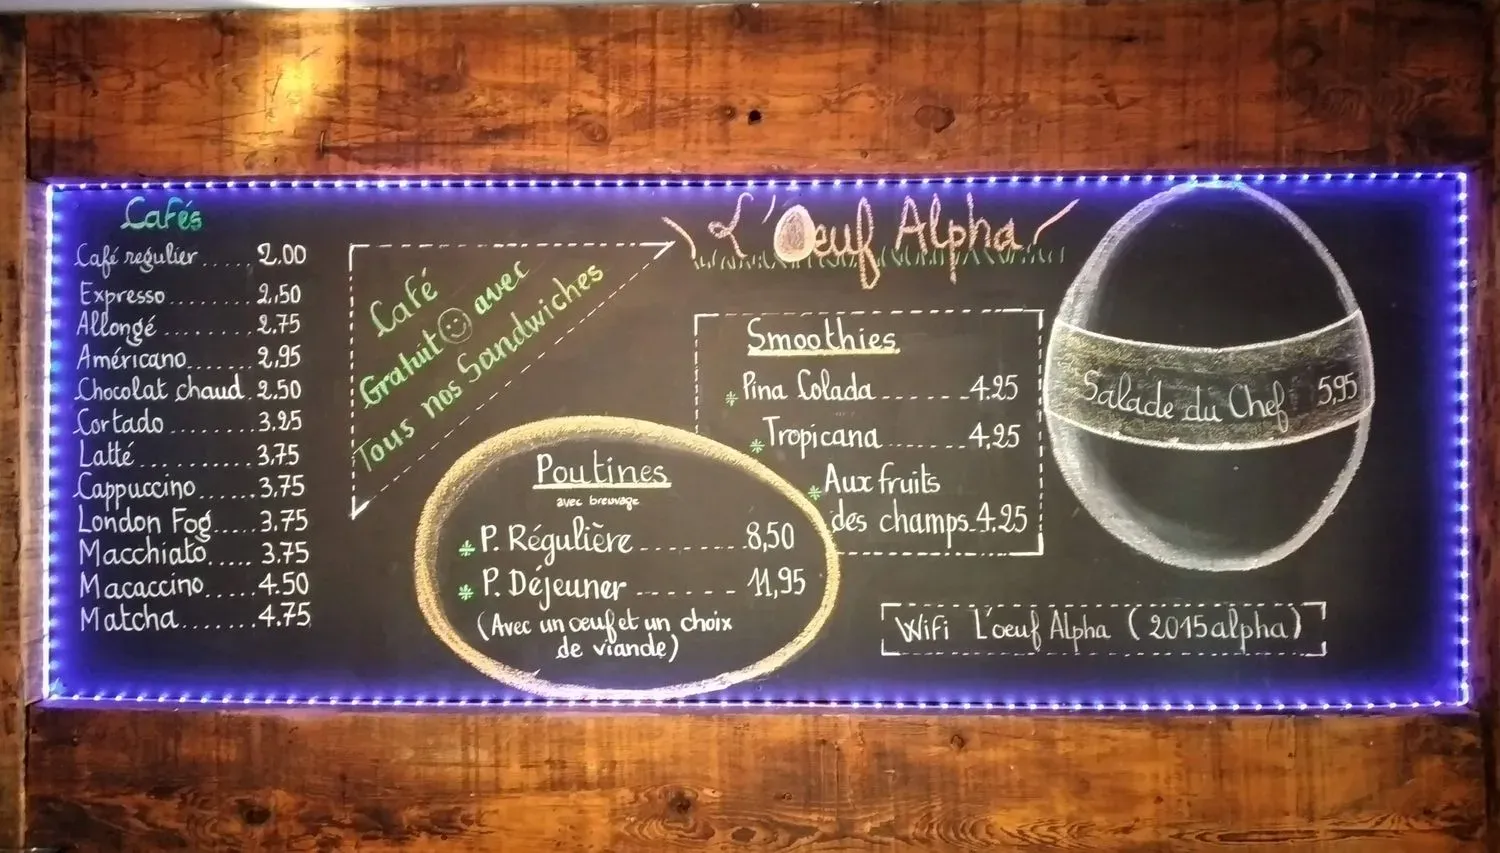 Cafés
Café regulier ..... 2.00
Expresso ........ 2,50
Allongé ........ 2.75
Américano ...... 2,95
Chocolat chaud . 2.50
Cortado ........ 3,25
Latté .......... 3,75
Cappuccino ...... 3.75
London Fog ..... 3.75
Macchiato ..... 3.75
Macaccino ..... 4.50
Matcha ....... 4.75
Café
Gratuit avec
Tous nos Sandwiches
Poutines
avec breuvage
P. Régulière ------- 8,50
P. Déjeuner ------ 11,95
(Avec un oeuf et un choix
de viande)
L'Oeuf Alpha
Smoothies
Pina Colada ------ 4.25
Tropicana ------ 4,25
Aux fruits
des champs - 4.25
Salade du Chef 5,95
Wifi L'oeuf Alpha (2015alpha)